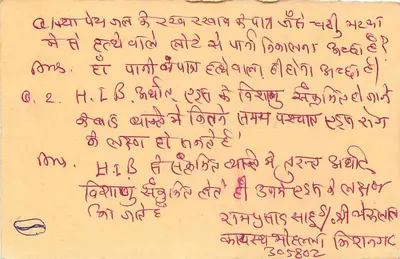 Q.1 क्या पेय जल के रख रखाव के पात्र जैसे चरी मटका
मे से हत्थे वाले लोटे से पानी निकालना अच्छा है?
Ans. हाँ पानी के पात्र हत्थेवाला ही होगा अच्छा है।
Q.2. H.I.B. अर्थात एड्स के विषाणु संक्रमित हो जाने
के बाद व्यक्ति मे कितने समय पश्चात एड्स रोग
के लक्षण हो सकते है!
Ans. H.I.B से संक्रमित व्यक्ति मे तुरन्त अर्थात
विषाणु संक्रमित होते ही उसमे एड्स के लक्षण
हो जाते है
रामप्रसाद साहू/श्री
कायस्थ मोहल्ला किशनगढ
305802